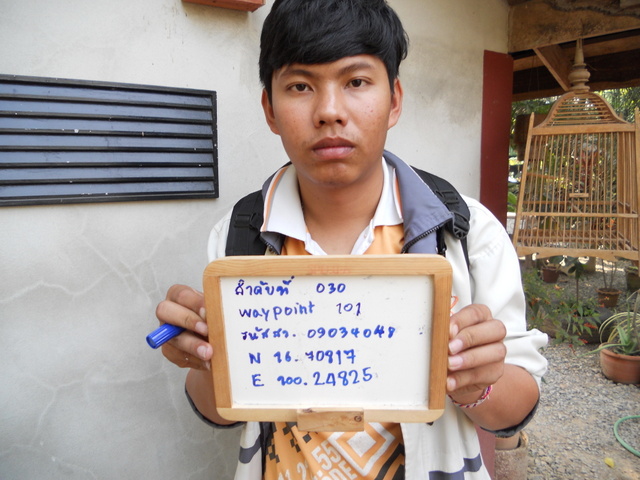 ลำดับที่ 030
waypoint 101
รหัสสว. 09034048
N 16.70817
E 100.24825
55